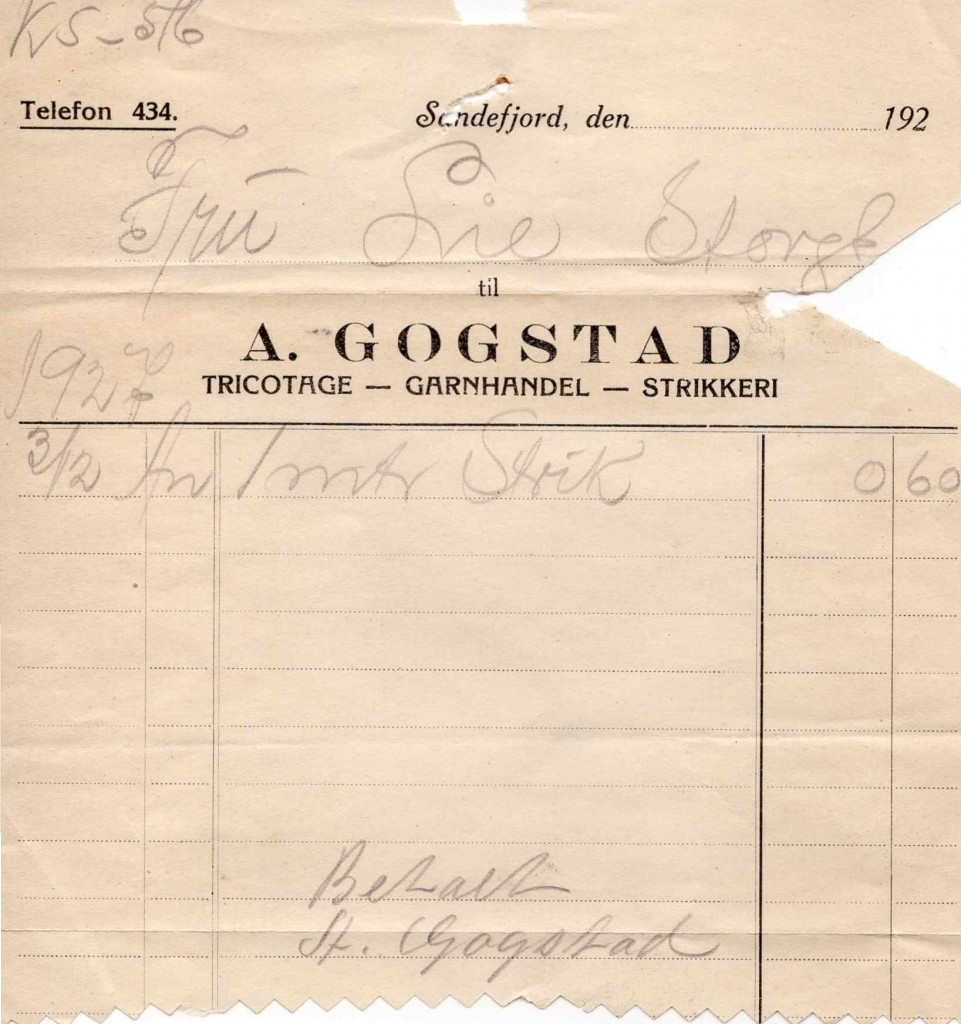 KS - 516
Telefon 434.
Sandefjord, den 192
Fru Lie Storgt
til
A. GOGSTAD
TRICOTAGE — GARNHANDEL — STRIKKERI
1927
3/12 An 1 mtr Strik 0 60
Betalt
St. Gogstad